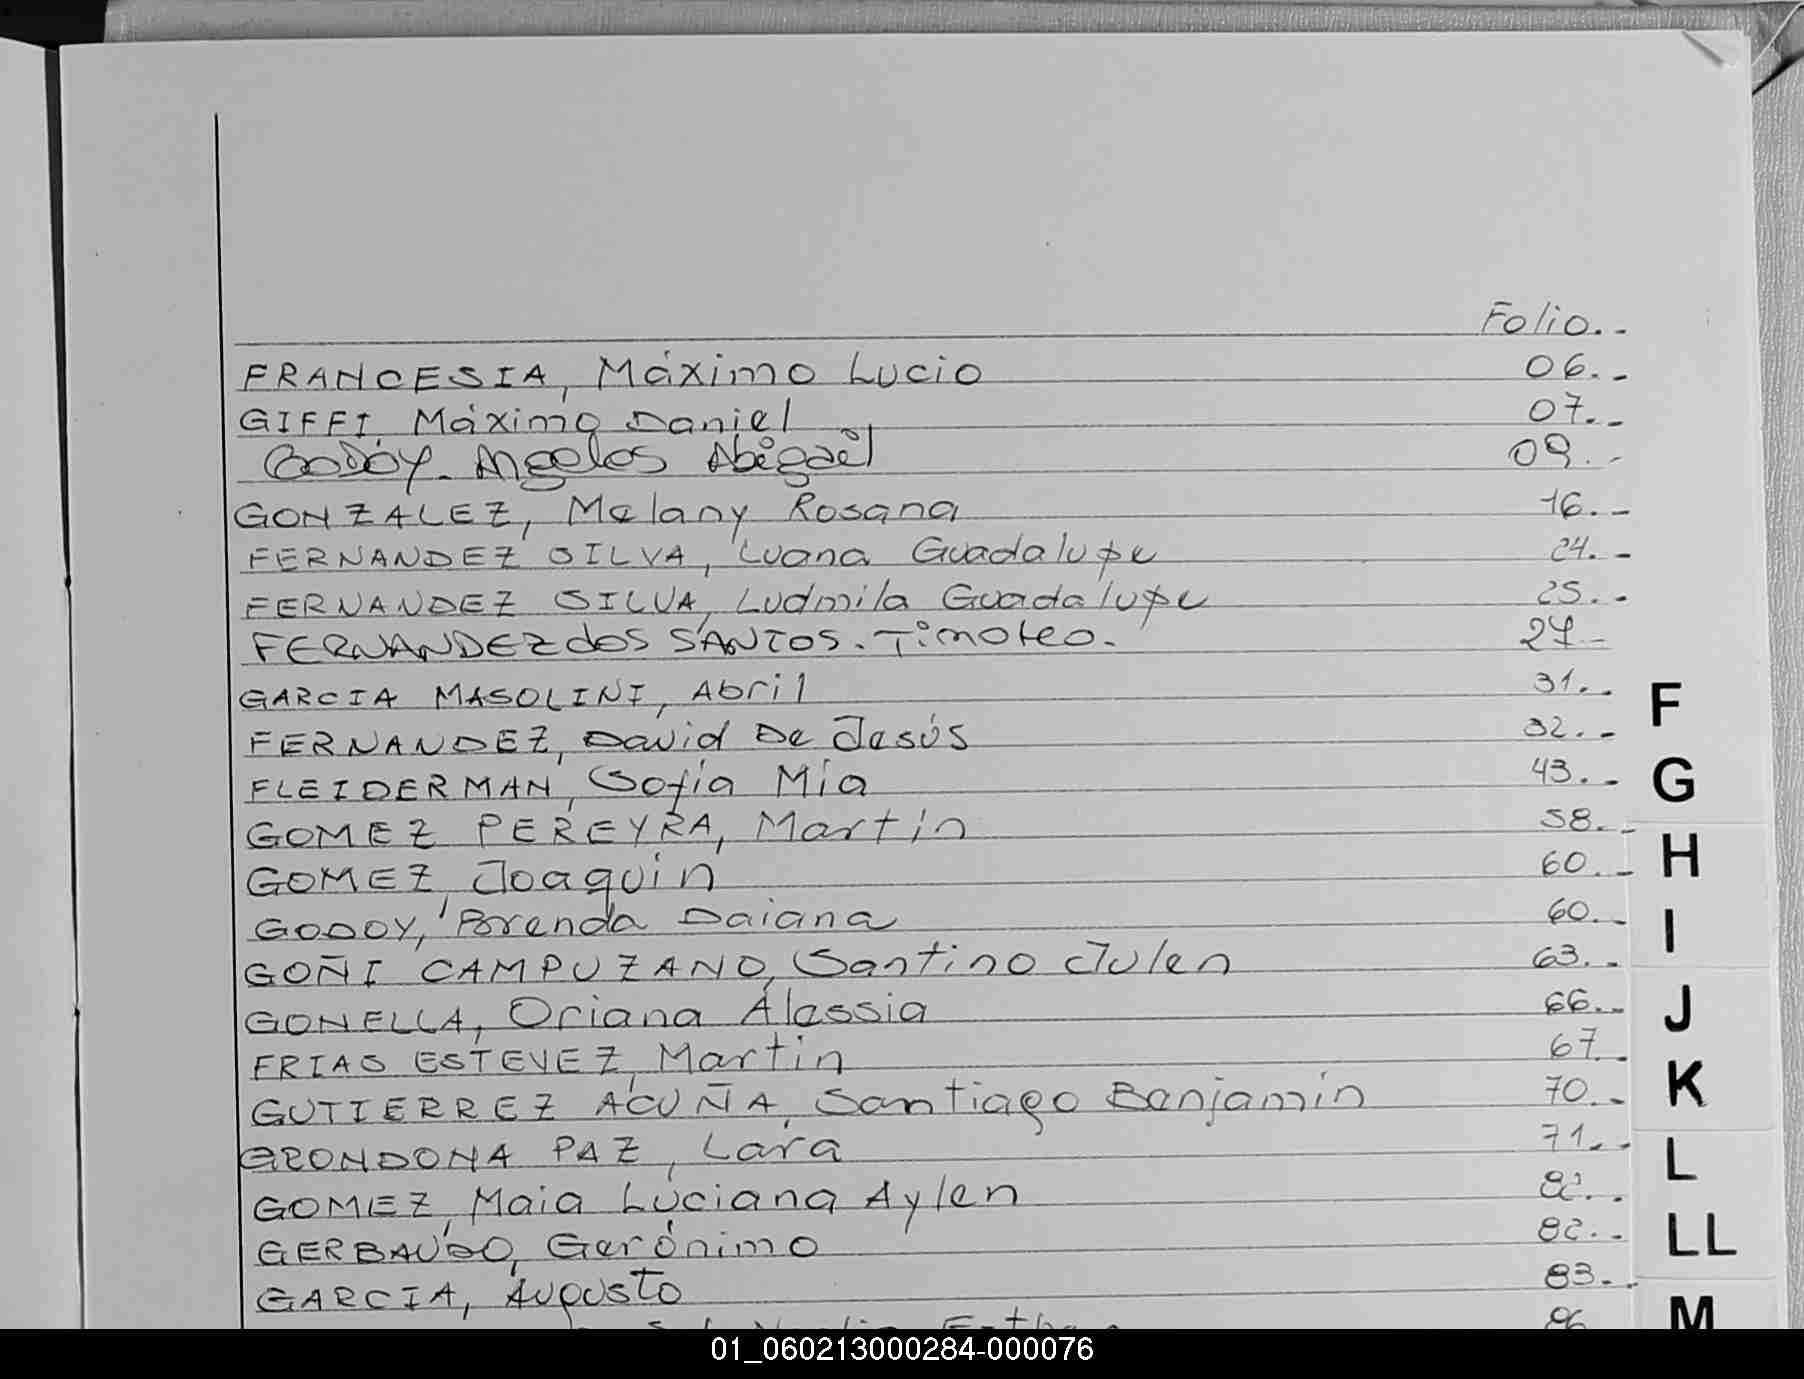 Folio..-
FRANCESIA, Máximo Lucio 06.-
GIFFI, Máximo Daniel 07.-
GODOY. Angeles Abigail 09.-
GONZALEZ, Melany Rosana 16.-
FERNANDEZ SILVA, Luana Guadalupe 24.-
FERNANDEZ SILVA, Ludmila Guadalupe 25.-
FERNANDEZ dos SANTOS. Timoteo.- 27-
GARCIA MASOLINI, Abril 31.-
FERNANDEZ, David De Jesús 32.-
FLEIDERMAN, Sofia Mia 43.-
GOMEZ PEREYRA, Martin 58.-
GOMEZ, Joaquin 60.-
GODOY, Brenda Daiana 60.-
GOÑI CAMPUZANO, Santino Julen 63.-
GONELLA, Oriana Alessia 66.-
FRIAS ESTEVEZ, Martin 67.-
GUTIERREZ ACUÑA, Santiago Benjamín 70.-
GRONDONA PAZ, Lara 71.-
GOMEZ, Maia Luciana Aylen
GERBAUDO, Gerónimo 82.-
GARCIA, Augusto 83.-
F
G
H
I
J
K
L
LL
M
01_060213000284-000076